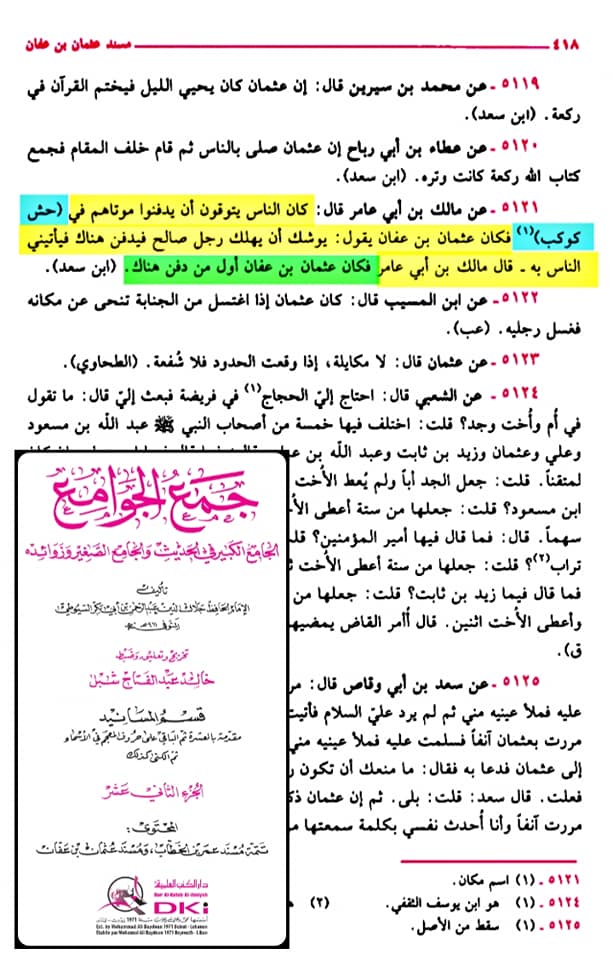 ٤١٨ مسند عثمان بن عفان
٥١١٩ - عن محمد بن سيرين قال: إن عثمان كان يحيي الليل فيختم القرآن في
ركعة. (ابن سعد).
٥١٢٠ - عن عطاء بن أبي رباح إن عثمان صلى بالناس ثم قام خلف المقام فجمع
كتاب الله ركعة كانت وتره. (ابن سعد).
٥١٢١ - عن مالك بن أبي عامر قال: كان الناس يتوقون أن يدفنوا موتاهم في (حش
كوكب)(١) فكان عثمان بن عفان يقول: يوشك أن يهلك رجل صالح فيدفن هناك فيأتيني
الناس به ـ قال مالك بن أبي عامر فكان عثمان بن عفان أول من دفن هناك. (ابن سعد).
٥١٢٢ - عن ابن المسيب قال: كان عثمان إذا اغتسل من الجنابة تنحى عن مكانه
فغسل رجليه. (عب).
٥١٢٣ - عن عثمان قال: لا مكايلة، إذا وقعت الحدود فلا شُفعة. (الطحاوي).
٥١٢٤ - عن الشعبي قال: احتاج إليّ الحجاج(١) في فريضة فبعث إليّ قال: ما تقول
في أم وأخت وجد؟ قلت: اختلف فيها خمسة من أصحاب النبي ﷺ عبد الله بن مسعود
وعلي وعثمان وزيد بن ثابت وعبد الله بن
لمتقناً. قلت: جعل الجد أباً ولم يُعط الأخت
ابن مسعود؟ قلت: جعلها من ستة أعطى
سهماً. قال: فما قال فيها أمير المؤمنين؟
تراب(٢)؟ قلت: جعلها من ستة أعطى الأخت
فما قال فيما زيد بن ثابت؟ قلت: جعلها من
وأعطى الأخت اثنين. قال أأمر القاض يمضيها
ق).
٥١٢٥ - عن سعد بن أبي وقاص قال:
عليه فملأ عينيه مني ثم لم يرد عليّ السلام فأتيت
مررت بعثمان آنفاً فسلمت عليه فملأ عينيه مني
إلى عثمان فدعا به فقال: ما منعك أن تكون
فعلت. قال سعد: قلت: بلى. ثم إن عثمان
مررت آنفاً وأنا أُحدث نفسي بكلمة سمعتها
٥١٢١ - (١) اسم مكان.
٥١٢٤ - (١) هو ابن يوسف الثقفي. (٢)
٥١٢٥ - (١) سقط من الأصل.
جمع الجوامع
الجامع الكبير في الحديث والجامع الصغير وزوائده
تأليف
الإمام الحافظ جلال الدين عبد الرحمن بن أبي بكر السيوطي
المتوفى ٩١١ هـ
تخريج وتعليق وضبط
خالد عبد الفتاح شبل
قسم المسانيد
مقدمة بالعشرة ثم الباقي على حروف المعجم في الأسماء
ثم الكنى كذلك
الجزء الثاني عشر
المحتوى:
تتمة مسند عمر بن الخطاب، ومسند عثمان بن عفان
دار الكتب العلمية
Dar Al-Kotob Al-ilmiyah
DKi
Est. by Mohamad Ali Baydoun 1971 Beirut - Lebanon
Établie par Mohamad Ali Baydoun 1971 Beyrouth - Liban